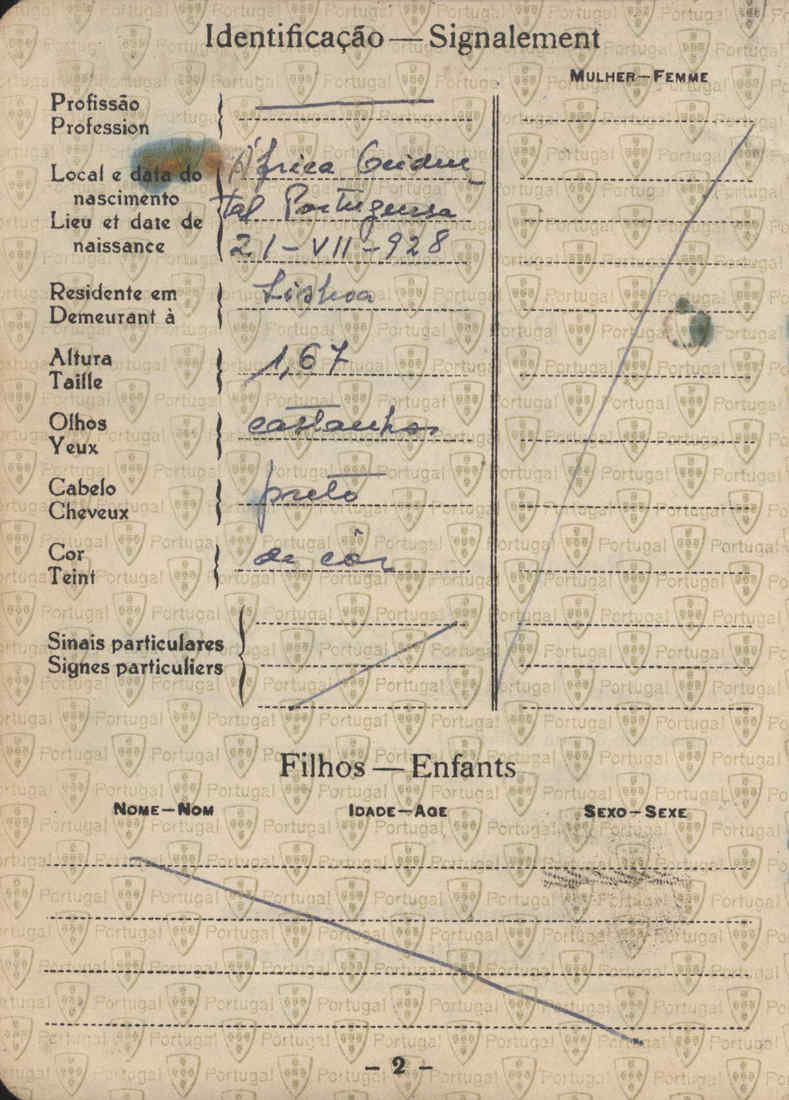 Identificação — Signalement
MULHER — FEMME
Profissão
Profession
Local e data do
nascimento
Lieu et date de
naissance
África Oriden_
tal Portuguesa
21-VII-928
Residente em
Demeurant à
Lisboa
Altura
Taille
1,67
Olhos
Yeux
castanhos
Cabelo
Cheveux
preto
Cor
Teint
de côr
Sinais particulares
Signes particuliers
Filhos — Enfants
NOME — NOM IDADE — AGE SEXO — SEXE
- 2 -